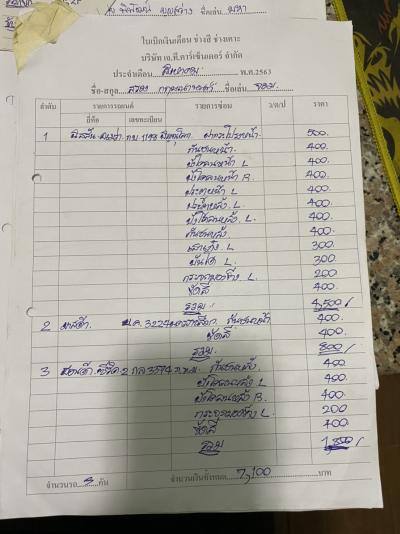 ใบเบิกเงินเดือน ช่างสี ช่างเคาะ
บริษัท เอ.ที.คาร์เซ็นเตอร์ จำกัด
ประจำเดือน สิงหาคม พ.ศ.2563
ชื่อ-สกุล ชื่อเล่น
ลำดับ รายการรถยนต์ รายการซ่อม ว/ด/ป ราคา
ยี่ห้อ เลขทะเบียน
1 นิสสัน ฝากระโปรงหน้า 500.
กันชนหน้า 400.
บังโคลนหน้า L 400.
บังโคลนหน้า R. 400.
ประตูหน้า L 400.
ประตูหลัง L. 400.
บังโคลนหลัง L. 400.
กันชนหลัง 400.
L 300
บันได L. 300
กระจกมองข้าง L 200
ขัดสี 400.
รวม. 4,500/
2 มาสด้า. 3224 กันชนหน้า 400.
ขัดสี 400.
รวม. 800/
3 ฮอนด้า. ซีวิค 2 กล 3574 กันชนหลัง. 400
บังโคลนหลัง L 400.
บังโคลนหลัง R. 400.
กระจกมองข้าง L. 200
ขัดสี 400
รวม 1,800/
จำนวนรถ 3 คัน จำนวนเงินทั้งหมด 7,100 บาท